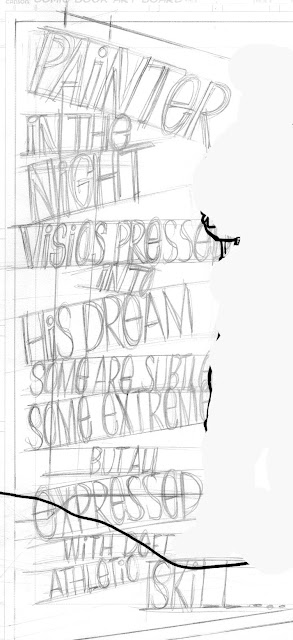 COMIC BOOK ART BOARD
PAINTER
IN THE
NIGHT
VISIOS PRESSED
INTO
HIS DREAM
SOME ARE SUBTLE
SOME EXTREME
BUT ALL
EXPRESSED
WITH DEFT
ATHLETIC
SKILL...